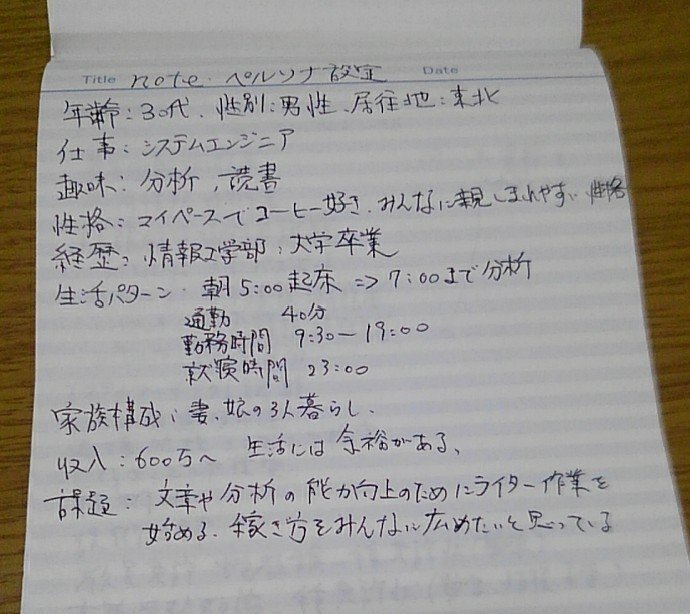 Title note. ペルソナ設定 Date
年齢：30代、性別：男性、居住地：東北
仕事：システムエンジニア
趣味：分析、読書
性格：マイペースでコーヒー好き、みんなに親しまれやすい性格
経歴：情報工学部、大学卒業
生活パターン 朝5:00起床 => 7:00まで分析
通勤 40分
勤務時間 9:30ー19:00
就寝時間 23:00
家族構成：妻、娘の3人暮らし、
収入：600万〜 生活には余裕がある、
課題：文章や分析の能力向上のためにライター作業を
始める、稼ぎ方をみんなに広めたいと思っている